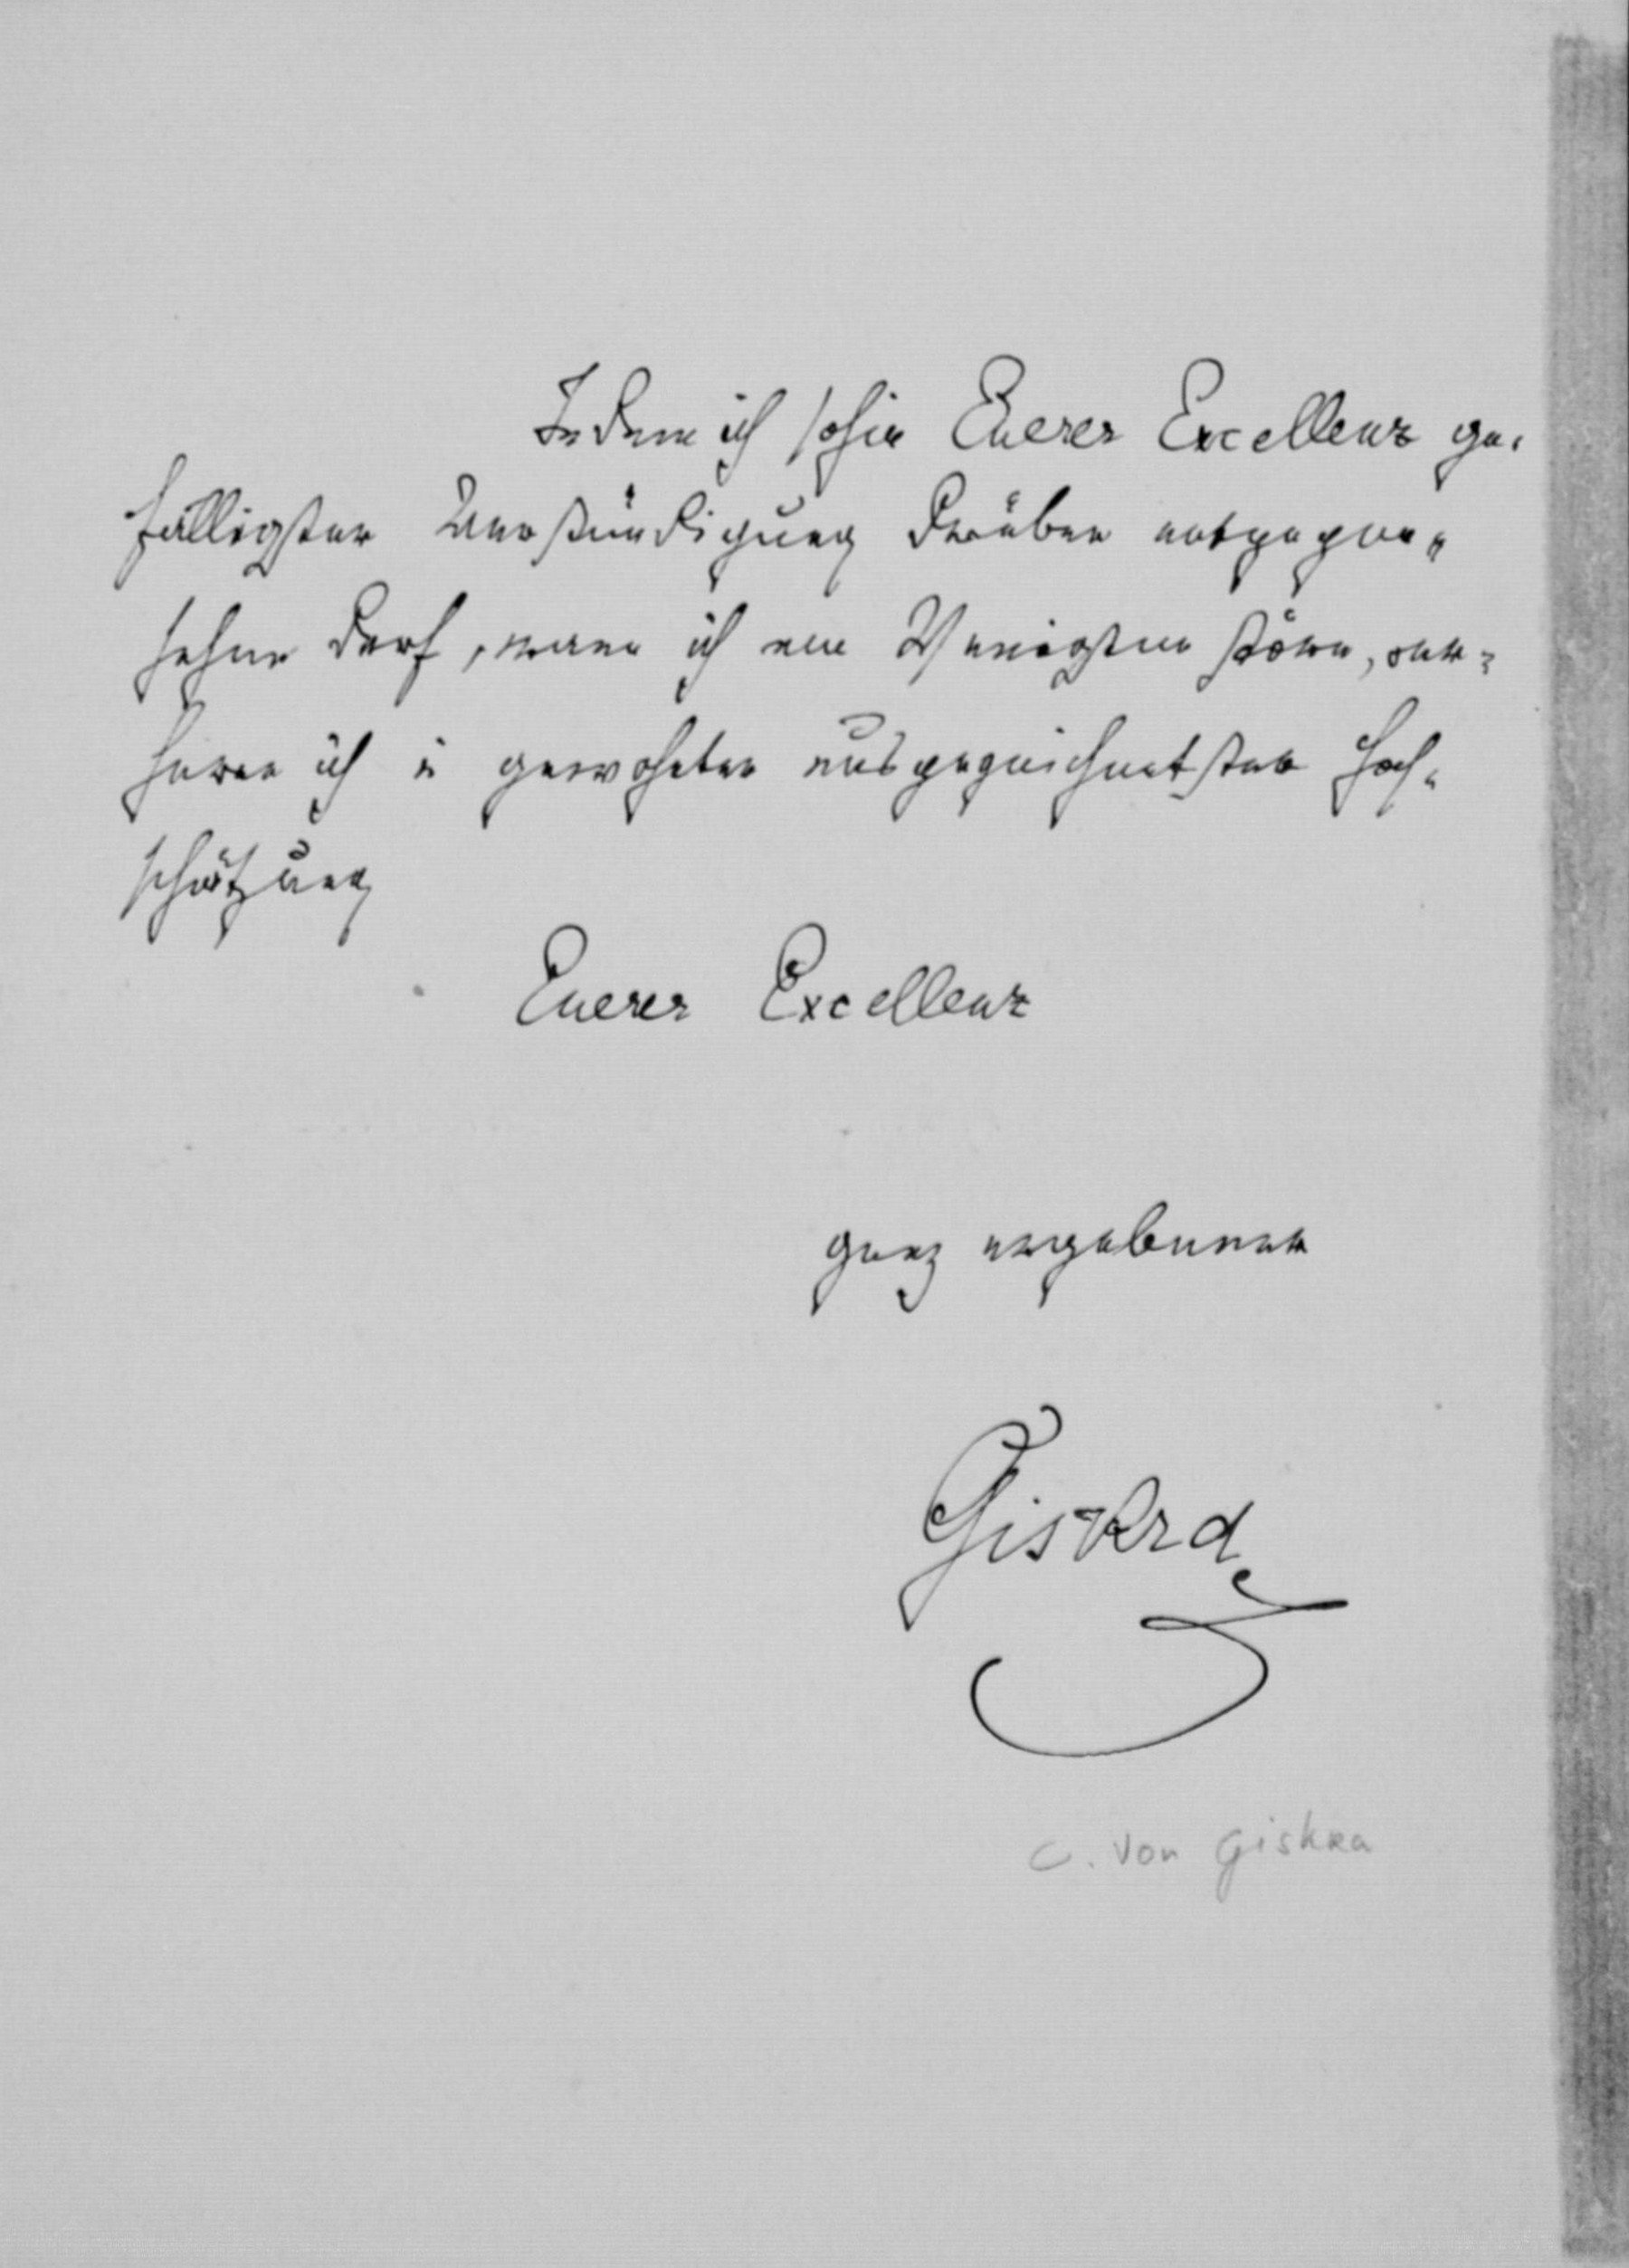 Indem ich sohin Euerer Excellenz ge-
fälligster Verständigung darüber entgegen-
sehen darf, wann ich am Wenigsten störe, ver-
harre ich in gewohnter ausgezeichnetster Hoch-
schätzung
Euerer Excellenz
ganz ergebener
Giskra
C. von Giskra